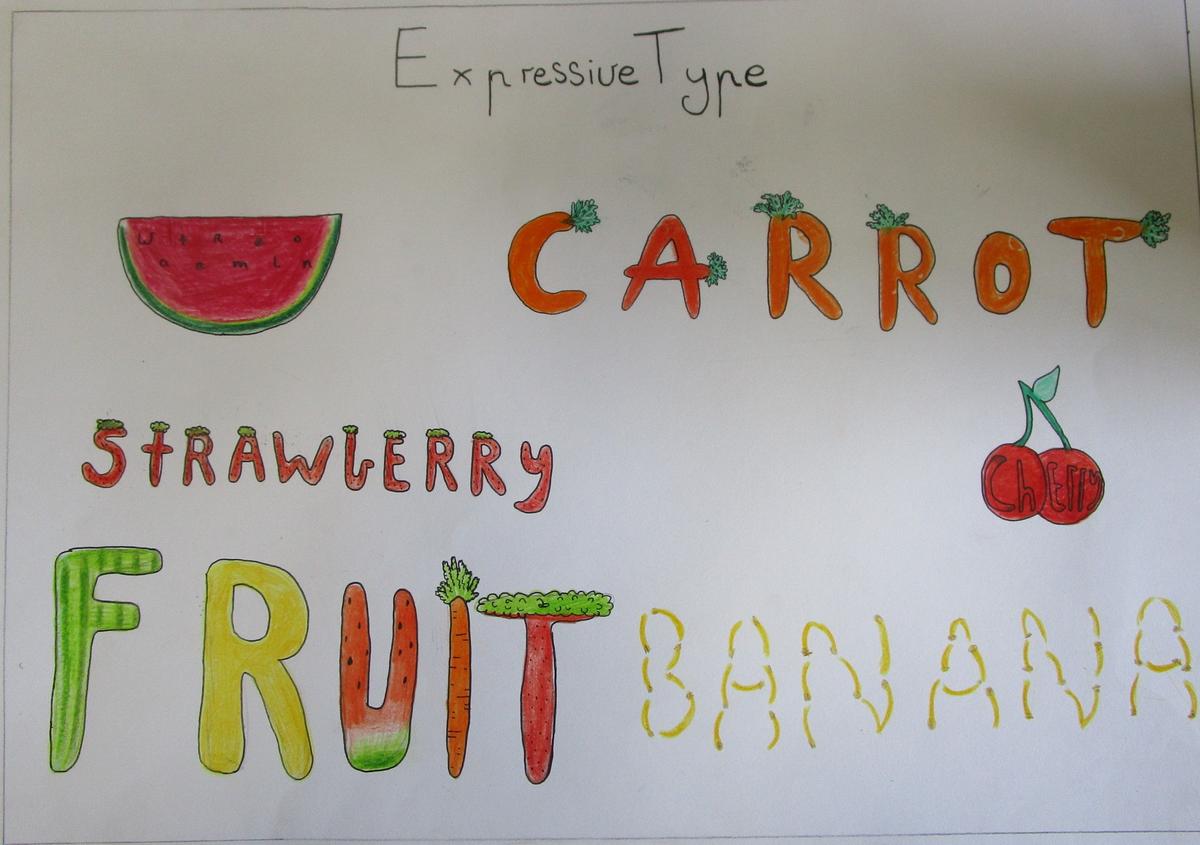 Expressive Type
W t R e o
a e m l n
CARROT
StRAWbERRy
ChErry
FRUIT
BANANA